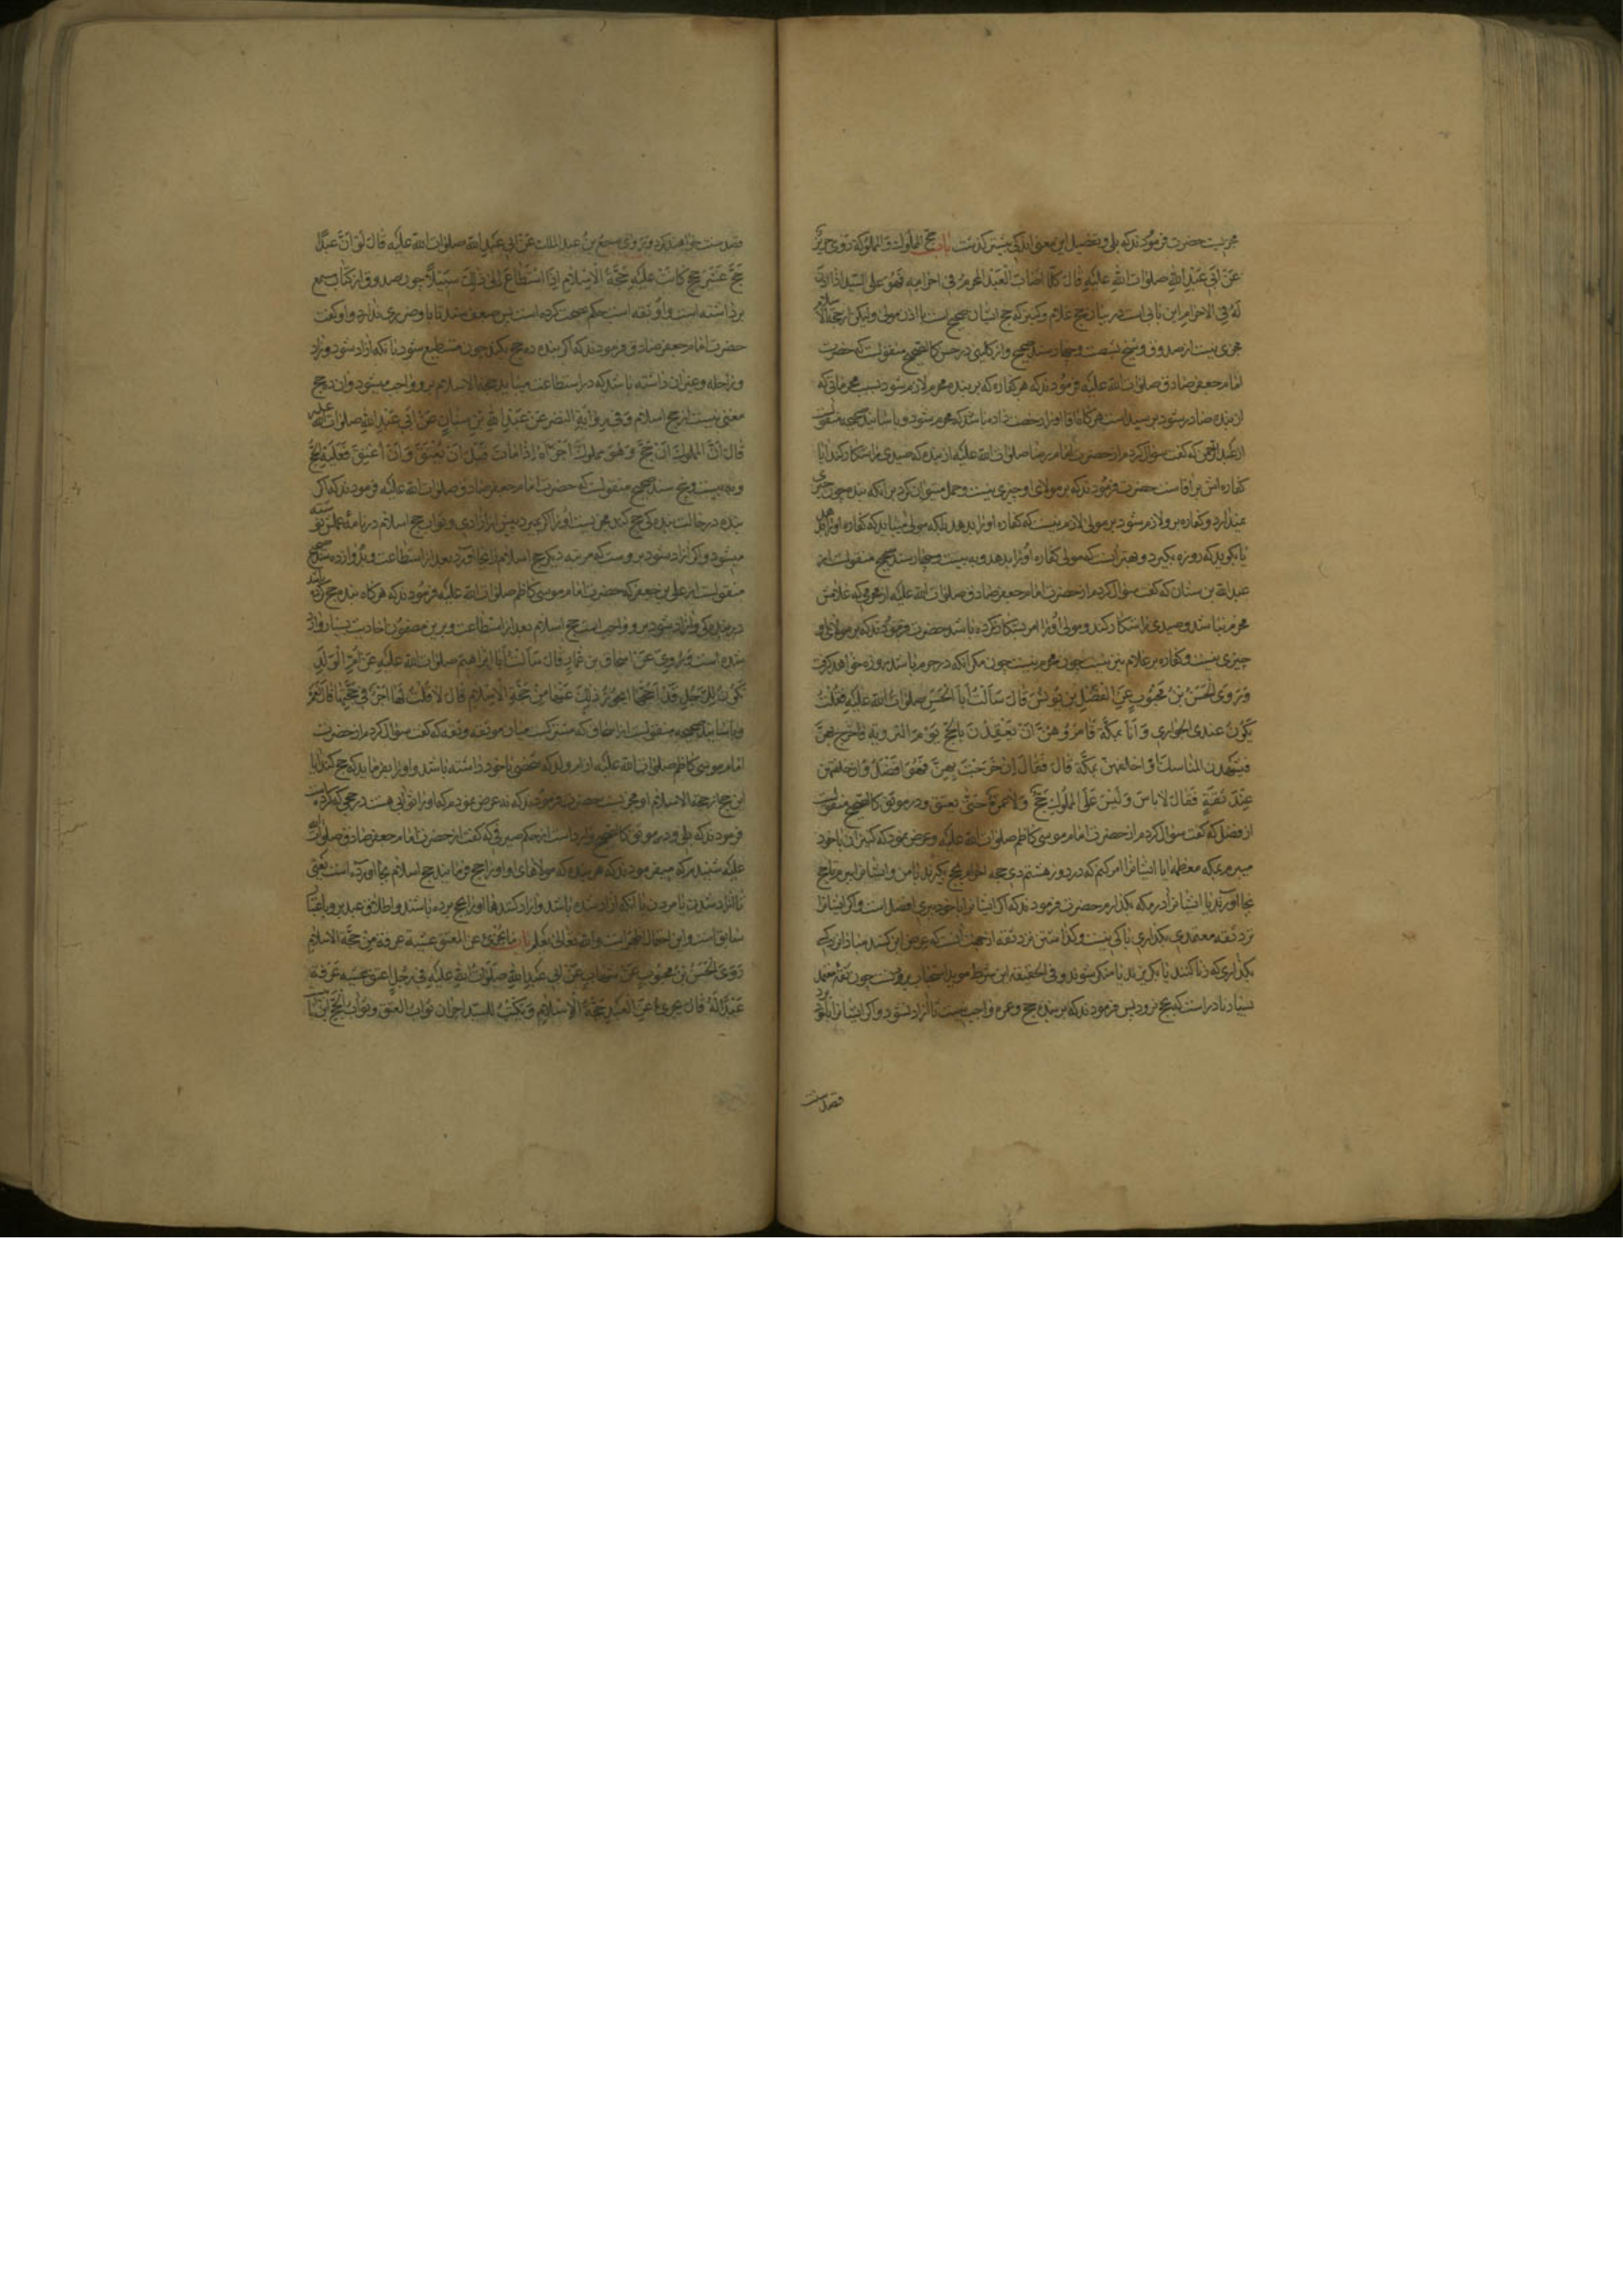 مجزیست حضرت فرمودند که بلی و تفصیل این معنی اندکی پیشتر گذشت باب حج المملوک و المملوکة روی حریز
عَن اَبی عَبْدِ اللهِ صلوات اللهِ علیْهِ قالَ کلّما اَصابَ الْعَبْدُ المحرمُ فی احرامِه فَهُوَ عَلَی السّیدِ اذا اذِنَ
لَهُ فِی الاحرامِ این بابی است در بیان حج غلام و کنیز که حج ایشان صحیح است با اذن مولی ولیکن از حجة الاسلام
مجزی نیست از صدوق و شیخ بشصت و چهار سند صحیح و از کلینی در حسن کالصحیح منقولست که حضرت
امام جعفر صادق صلوات الله علیه فرمودند که هر کفاره که بر بنده محرم لازم شود بسبب محرماتی که
از بنده صادر شود بر سید است هرگاه آقا او را رخصت داده باشد که محرم شود و باسانید صحیحه منقولست
از عبدالرحمن که گفت سؤال کردم از حضرت امام رضا صلوات الله علیه از بنده که صیدی را شکار کند آیا
کفاره اش بر اقاست حضرت فرمودند که بر مولای او چیزی نیست و حمل میتوان کرد بر انکه بنده چون چیزی
نمیدارد و کفاره برو لازم شود بر مولی لازم نیست که کفاره او را بدهد بلکه مولی میباید که کفاره او را بدهد
یا بگوید که روزه بگیرد و بهتر آنست که مولی کفاره او را بدهد و به بیست و چهار سند صحیح منقولست از
عبد الله بن سنان که گفت سؤال کردم از حضرت امام جعفر صادق صلوات الله علیه از محرمی که غلامش
محرم نباشد و صیدی را شکار کند و مولی او را امر بشکار نکرده باشد حضرت فرمودند که بر مولای او
چیزی نیست و کفاره بر غلام نیز نیست چون محرم نیست چون مکر انکه در حرم باشد روزه خواهد گرفت
وَ رَوَی الْحَسَنُ بْنُ مَحْبُوبٍ عَنِ الْفَضْلِ بْنِ یُونُسَ قالَ سَاَلْتُ اَبَا الْحَسَنِ صلوات الله علیه فَقُلْتُ
یَکُونُ عِنْدِی الْجَواری وَ اَنَا بِمَکَّةَ فَآمُرُوهُنَّ اَنْ یَعْقِدْنَ بِالْحَجِّ یَوْمَ الترویة فاخرج بهنَّ
فَیَشْهَدْنَ المناسکَ اَوْ اخلفهنّ بِمَکَّةَ قالَ فَقالَ اِنْ خَرَجْتَ بِهِنَّ فَهُوَ اَفْضَلُ وَ اِنْ خلفتهن
عِنْدَ ثِقَةٍ فَقالَ لاباسَ وَ لَیْسَ عَلَی المَمْلُوکِ حَجٌّ وَلا عُمْرَةٌ حَتّی یعتق و در موثق کالصحیح منقولست
از فضل که گفت سؤال کردم از حضرت امام موسی کاظم صلوات الله علیه و عرض نمودم که کنیزان با خود
میبرم بمکه معظمه ایا ایشانرا امر کنم که در روز هشتم ذی حجه احرام بحج بگیرند با من و ایشانرا ببرم تا حج
بجا آورند یا ایشانرا در مکه بگذارم حضرت فرمودند که اگر ایشانرا با خود ببری افضل است و اگر ایشانرا
نزد ثقه معتمدی بگذاری باکی نیست و گذاشتن نزد ثقه از جهت آنست که
بگذاری که زنا کنند یا بگریزند یا منکر شوند و فی الحقیقه این شرط موید استحباب چون ثقه معتمد
بسیار نادر است که بحج نرود پس فرمودند که بر بنده حج و عمره واجب نیست تا آزاد نشود و اگر ایشانرا
قصد سنت
قصد سنت خواهند کرد وَ رَوی مِسمَع بنُ عبد الملک عَن اَبی عَبْدِ الله صلوات الله علیه قالَ لَوْ اَنَّ عَبْدًا
حَجَّ عَشْرَ حِجَجٍ کانَتْ عَلَیْهِ حَجَّةُ الْاِسْلامِ اِذَا اسْتَطاعَ اِلی ذلِکَ سَبیلاً چون صدوق از کتاب مسمع
برداشته است و او ثقه است حکم بصحت کرده است پس ضعف سند تا باو ضرری ندارد و او گفت
حضرت امام جعفر صادق فرمودند که اگر بنده ده حج بکند چون مستطیع شود بانکه ازاد شود و زاد
و راحله و غیر آن داشته باشد که در استطاعت میباید حجة الاسلام برو واجب میشود و آن ده حج
مغنی نیست از حج اسلام وَ فی رِوایَةِ النضر عَنْ عَبْدِ اللهِ بْنِ سِنانٍ عَنْ اَبی عَبْدِ اللهِ صلوات الله علیه
قالَ اِنَّ المملوکَ اِنْ حَجَّ وَ هُوَ مملوکٌ اَجْزَأَهُ اِذا ماتَ قَبْلَ اَنْ یُعْتَقَ وَ اِنْ اُعْتِقَ فَعَلَیْهِ الحَجُّ
و به بیست و پنج سند صحیح منقولست که حضرت امام جعفر صادق صلوات الله علیه فرمودند که اگر
بنده در حالت بندگی حج کند مجزیست او را اگر بمیرد پیش از آزادی و ثواب حج اسلام در نامه عملش نوشته
میشود و اگر آزاد شود بروست که مرتبه دیگر حج اسلام را بجا آورد بعد از استطاعت و بدوازده سند صحیح
منقولست از علی بن جعفر که حضرت امام موسی کاظم صلوات الله علیه فرمودند که هرگاه بنده حج کرده باشد
در بندگی و آزاد شود برو واجب است حج اسلام بعد از استطاعت و برین مضمون احادیث بسیار وارد
شده است وَ رُوِیَ عَنْ اسحاق بن عَمّارٍ قالَ سَاَلْتُ اَبا اِبْراهیمَ صلوات الله علیه عَنْ اُمِّ الْوَلَدِ
تَکُونُ لِلرَّجُلِ قَدْ اَحَجَّها اَیَجُوزُ ذلِکَ عَنْها مِنْ حَجَّةِ الْاِسْلامِ قالَ لا قُلْتُ لَها اَجْرٌ فی حَجَّتِها قالَ نَعَمْ
و باسانید صحیحه منقولست از اسحاق که مشترکست میان موثقه و ثقه که گفت سؤال کردم از حضرت
امام موسی کاظم صلوات الله علیه از ام ولد که شخصی با خود داشته باشد و او را بفرماید که حج کند آیا
این حج از حجة الاسلام او مجزیست حضرت فرمودند که نه عرض نمودم که او را ثوابی هست در حجی که کرده است
فرمودند که بلی و در موثق کالصحیح وارد است از حکم صیرفی که گفت از حضرت امام جعفر صادق صلوات الله
علیه شنیدم که میفرمودند که هر بنده که مولاهای او او را حج فرمایند حج اسلام بجا آورده است یعنی
تا آزاد شدن یا مردن یا انکه آزاد شده باشد و آزاد کنندها او را بحج برده باشند و اطلاق عبد برو باعتبار
سابق است و این احتمال اظهر است والله تعالی یعلم باب ما یجزیُ عن المعتق عشیة عرفة مِنْ حَجَّة الاسلام
رَوَی الْحَسَنُ بْنُ مَحبُوبٍ عَنْ شهابٍ عَنْ اَبی عَبْدِ اللهِ صَلَواتُ اللهِ عَلَیهِ فی رَجُلٍ اعتق عشیه عَرَفَة
عَبْدًا لَهُ قالَ یجزیُ عَنِ الْعَبْدِ حَجَّةُ الْاِسْلامِ وَ یُکْتَبُ للسید اجران ثَواب العتق و ثَواب الحَجّ